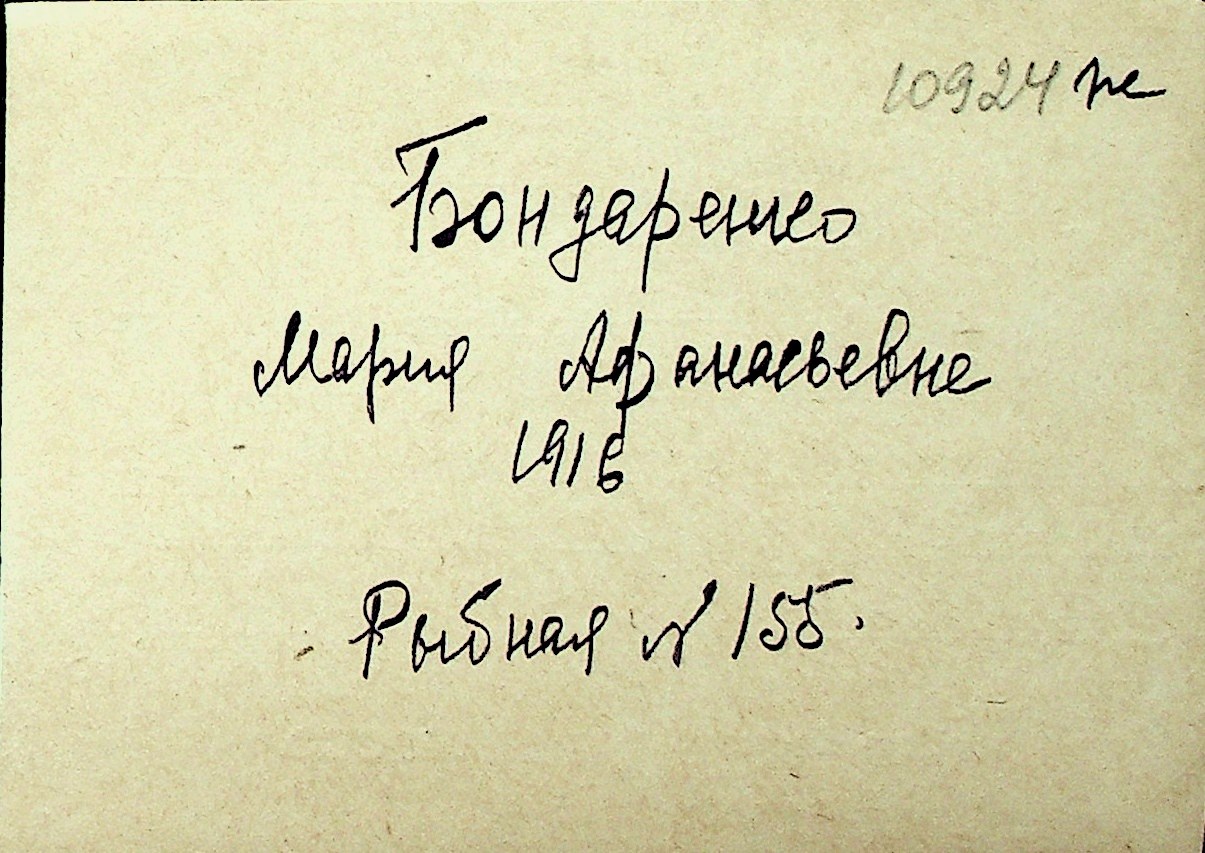 10924
Бондаренко
Мария Афанасьевна
1916
Рыбная № 155.